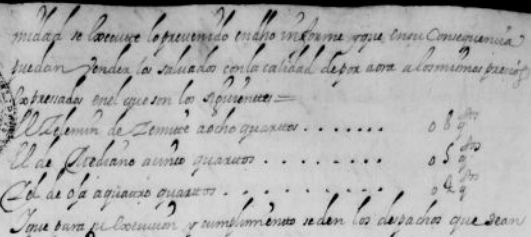 midad se execute lo prevenido en dho informe y que en su Consequencia
puedan vender los salvados con la calidad de por aora a los mismos precios
expressados en el que son los siguientes =
El Zelemin de Zemite a ocho quartos . . . . . . . 08 qtos
El de Mediano a cinco quartos . . . . . . . . . 05 qtos
El de oja a quatro quartos . . . . . . . . . . 04 qtos
Y que para su execucion y cumplimiento se den los despachos que sean